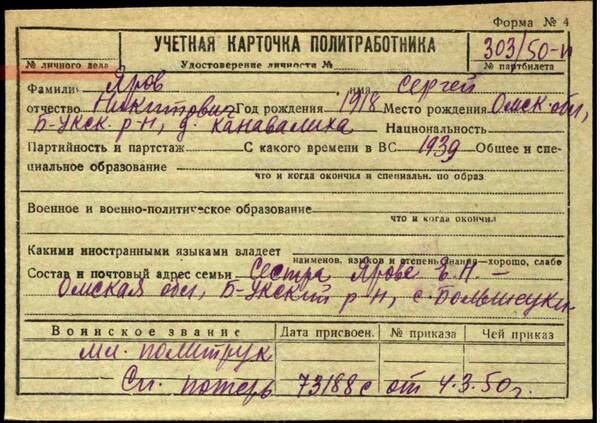 Форма № 4
УЧЕТНАЯ КАРТОЧКА ПОЛИТРАБОТНИКА 303/50-п
№ личного дела Удостоверение личности № № партбилета
Фамилия Яров имя Сергей
отчество Никитович Год рождения 1918 Место рождения Омск обл,
Б-Укск. р-н, д. Канавалиха Национальность
Партийность и партстаж С какого времени в ВС 1939 Общее и спе-
циальное образование
что и когда окончил и специальн. по образ
Военное и военно-политическое образование
что и когда окончил
Какими иностранными языками владеет
наименов. языков и степень знания—хорошо, слабо
Состав и почтовый адрес семьи Сестра Ярова Е.Н. –
Омская обл, Б-Укский р-н, с. Большеуки
Воинское звание Дата присвоен. № приказа Чей приказ
мл. политрук
Сп. потерь 73188с от 4.3.50г.